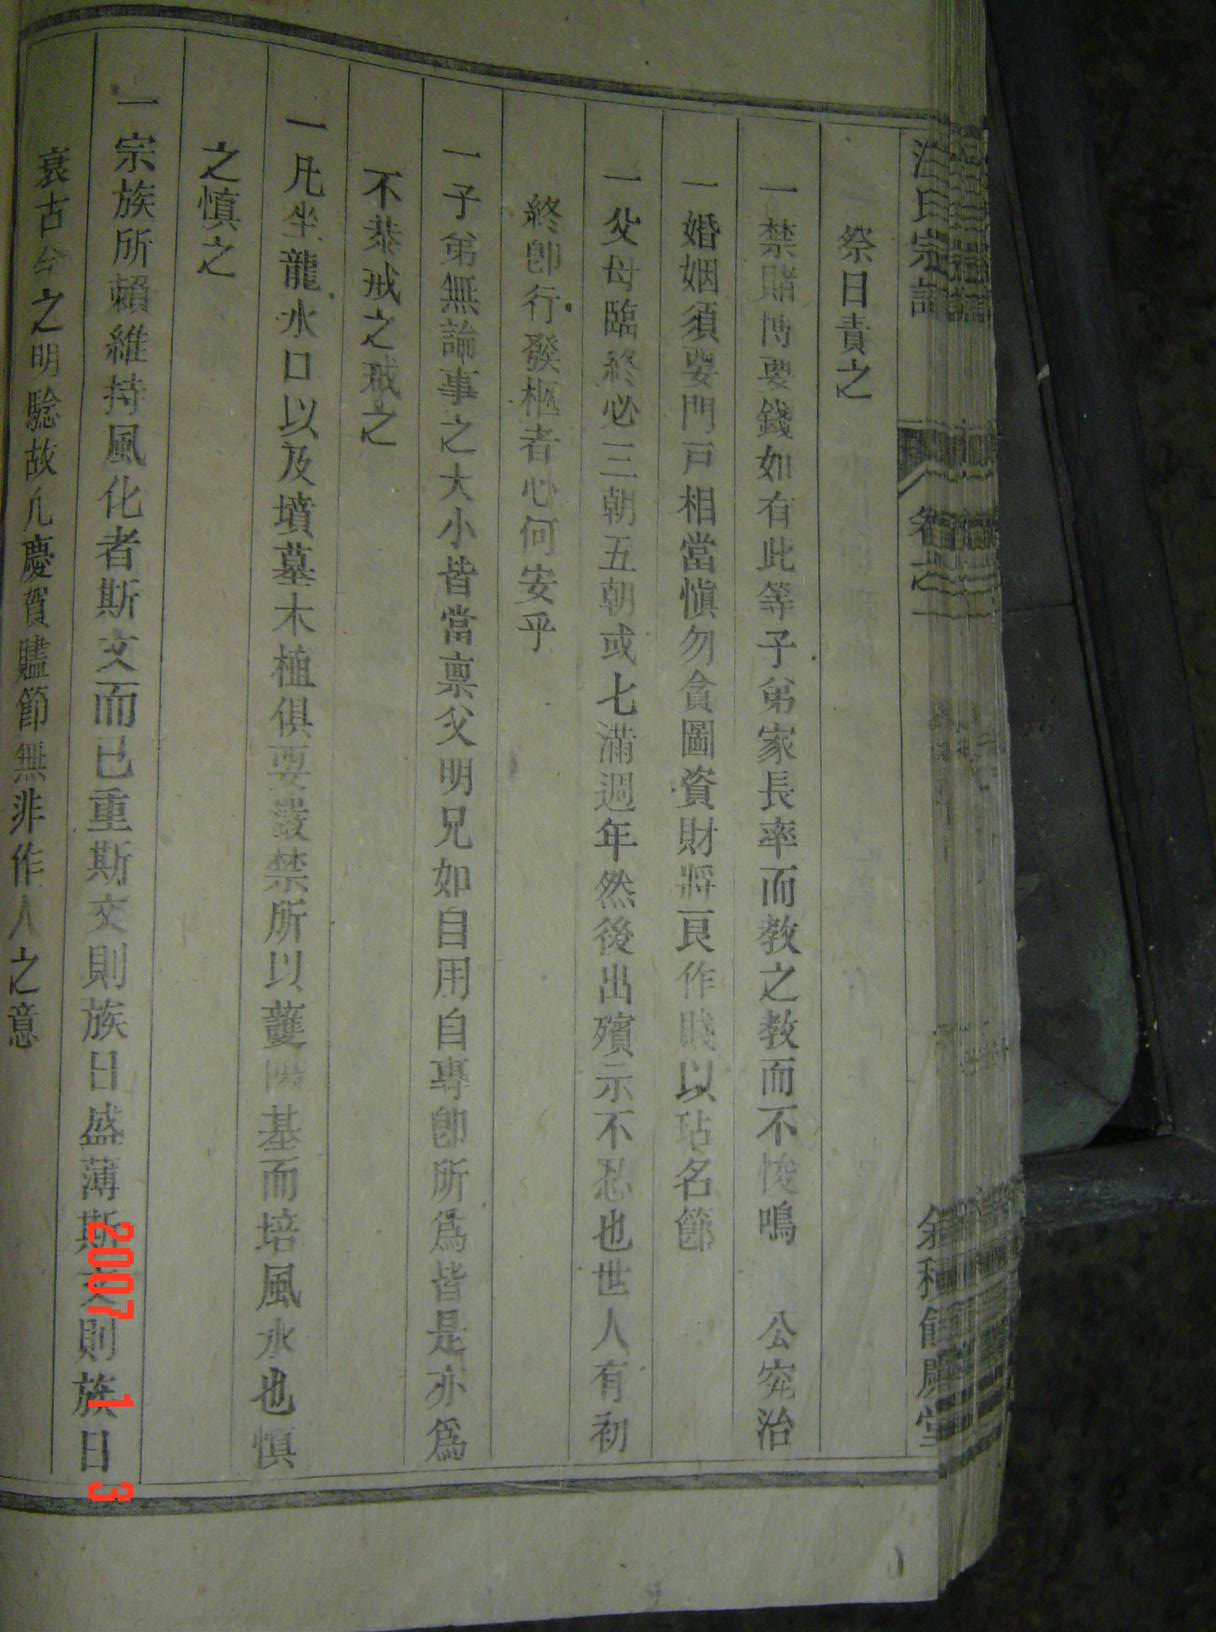 氏宗譜
卷之一
祭日責之
一禁賭博要錢如有此等子弟家長率而教之教而不悛鳴 公究治
一婚姻須要門戸相當慎勿貪圖資財將良作賤以玷名節
一父母臨終必三朝五朝或七滿週年然後出殯示不忍也世人有初
終卽行發柩者心何安乎
一子弟無論事之大小皆當禀父明兄如自用自專卽所爲皆是亦爲
不恭戒之戒之
一凡坐龍水口以及墳墓木植俱要嚴禁所以護陽基而培風水也慎
之慎之
一宗族所賴維持風化者斯文而已重斯文則族日盛薄斯文則族日
衰古今之明驗故凡慶賀贐節無非作人之意
2007 1 3